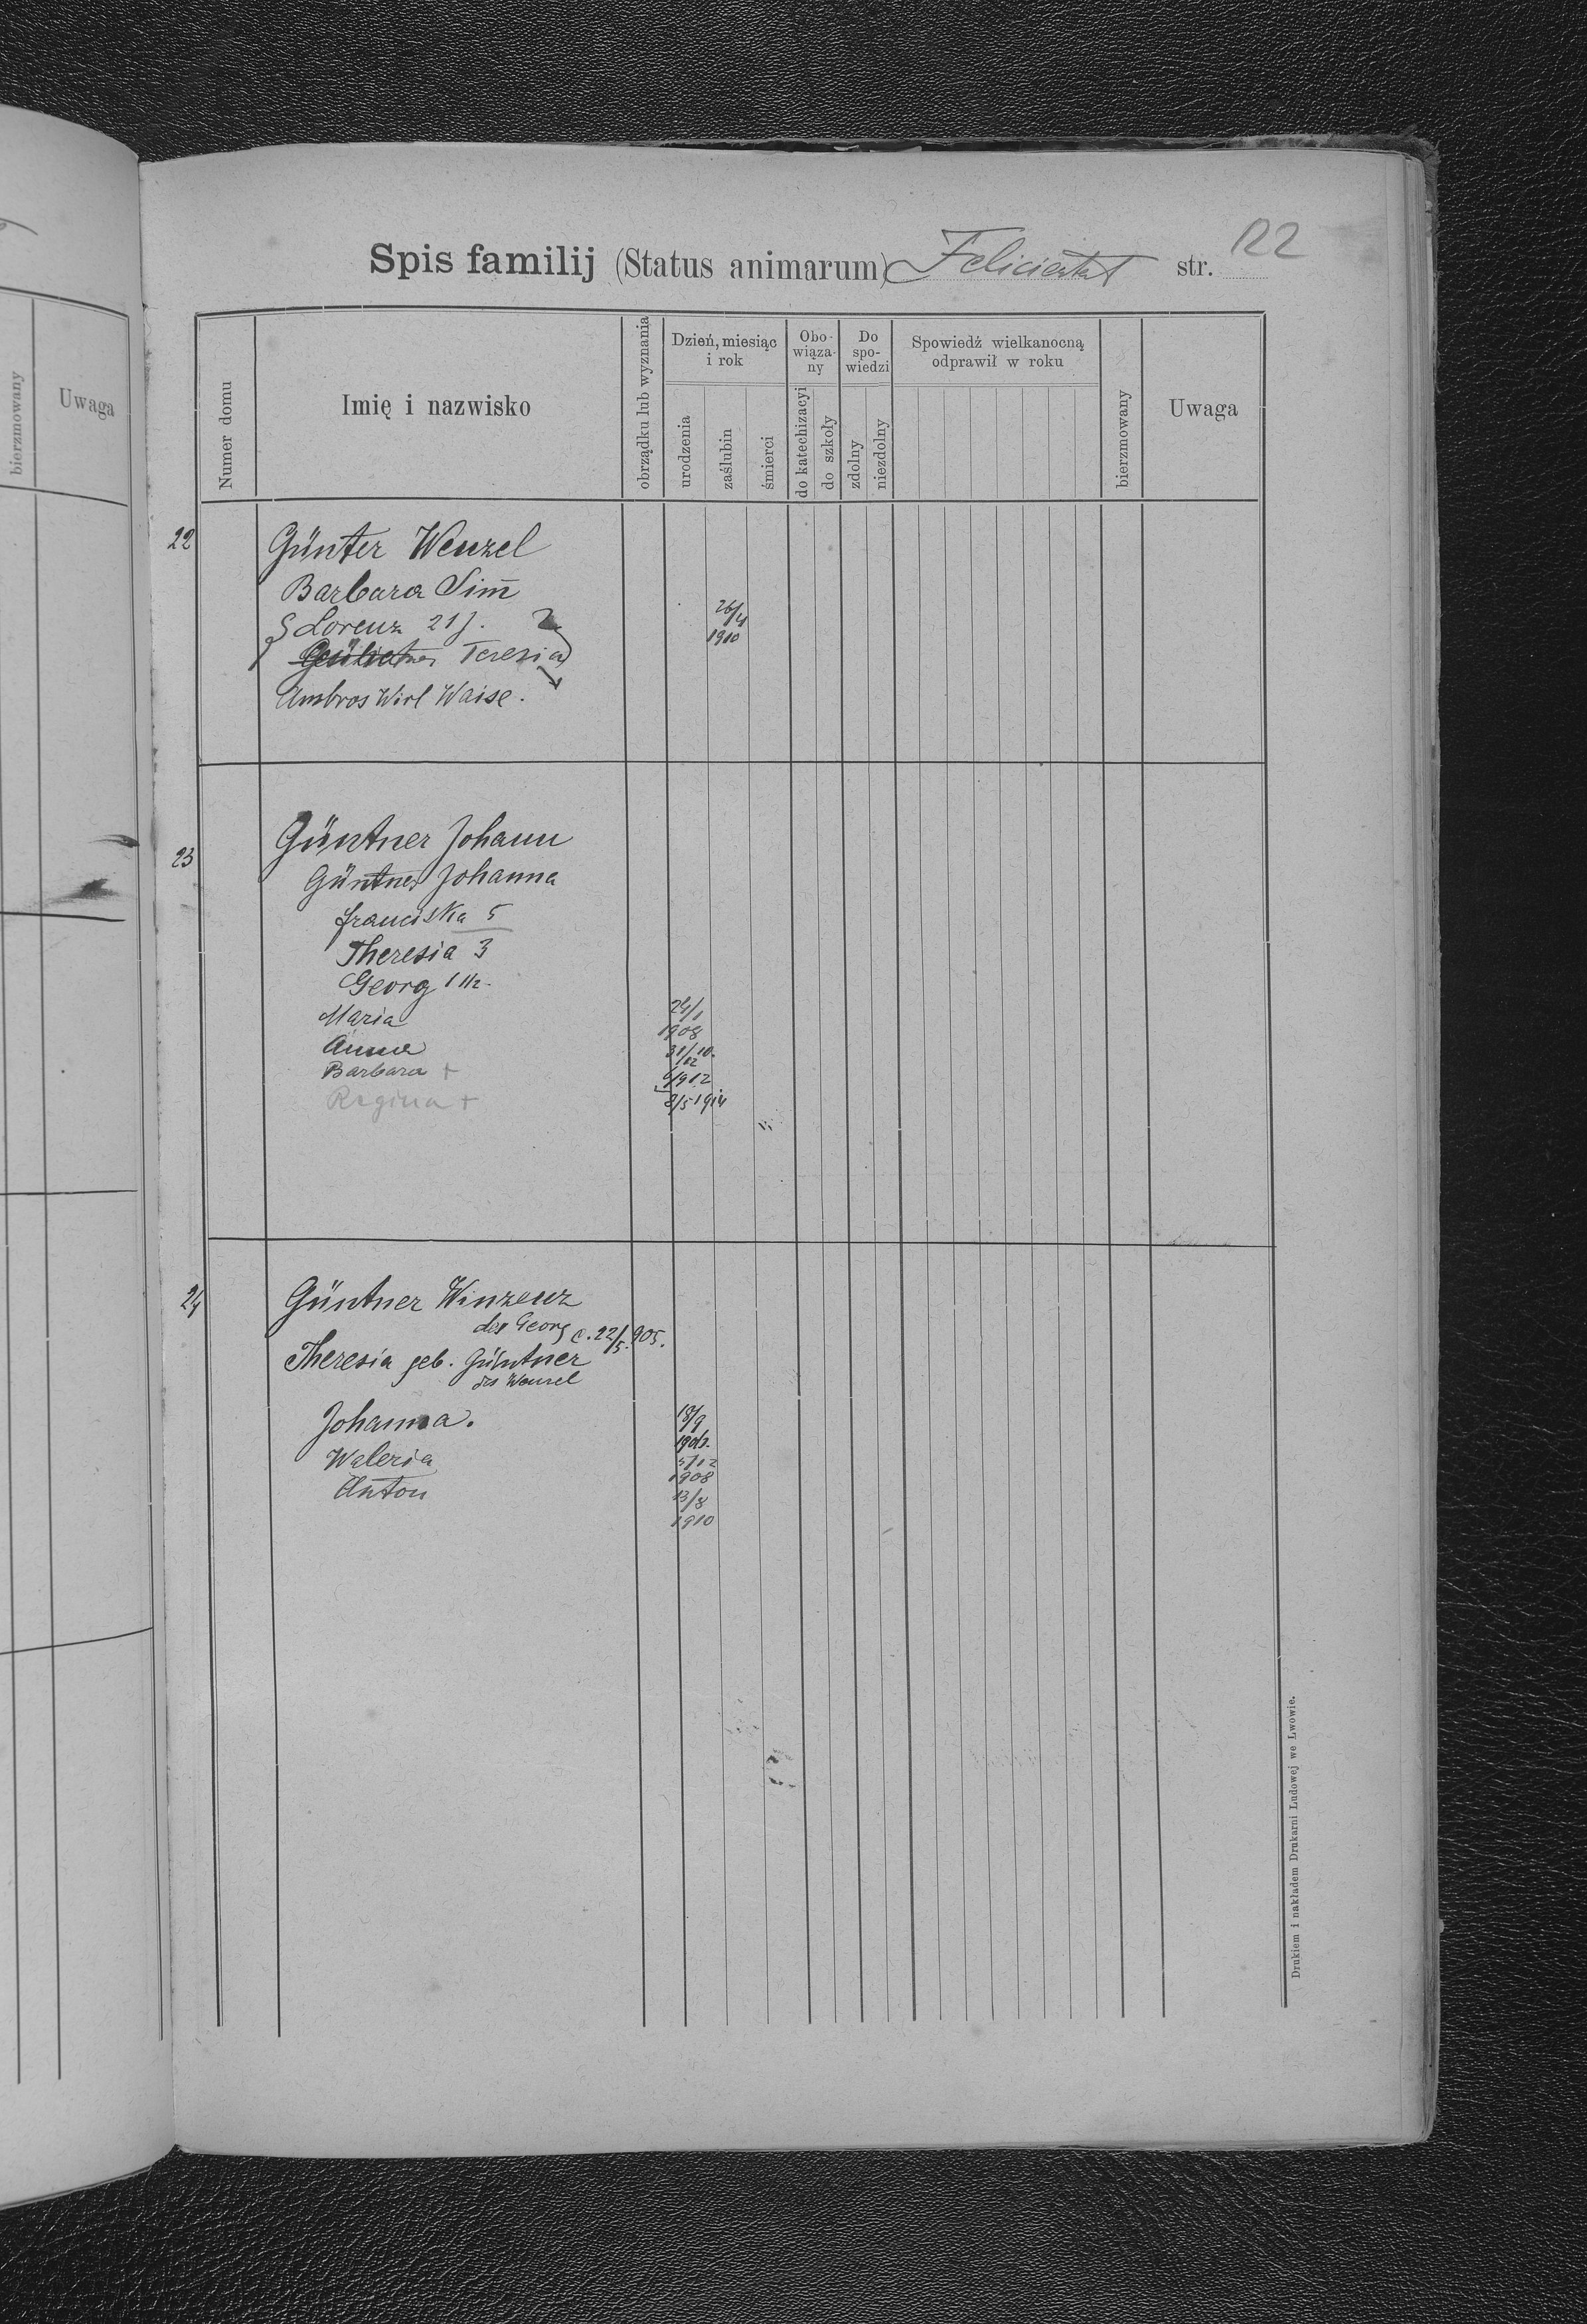 bierzmowany
Uwaga
Spis familij (Status animarum) Felicienthal str. 122
Numer domu
Imię i nazwisko
obrządku lub wyznania
Dzień, miesiąc i rok
urodzenia
zaślubin
śmierci
Obo-wiąza-ny
do katechizacyi
do szkoły
Do spo-wiedzi
zdolny
niezdolny
Spowiedź wielkanocną odprawił w roku
bierzmowany
Uwaga
22 Günter Wenzel
Barbara Sim̄
Lorenz 21 J. 26/4 1910
Teresia
Ambros Wirl Waise.
23 Güntner Johann
Güntner Johanna
Franciska 5
Theresia 3
Georg 1 1/2
Maria 24/1 1908
Anna 31/10
Barbara + 1912
Regina + 8/5 1914
24 Güntner Winzenz
des Georg c. 22/5. 905.
Theresia geb. Güntner
des Wenzel
Johanna. 18/9
Waleria 5/12 1908
Anton 13/8 1910
Drukiem i nakładem Drukarni Ludowej we Lwowie.